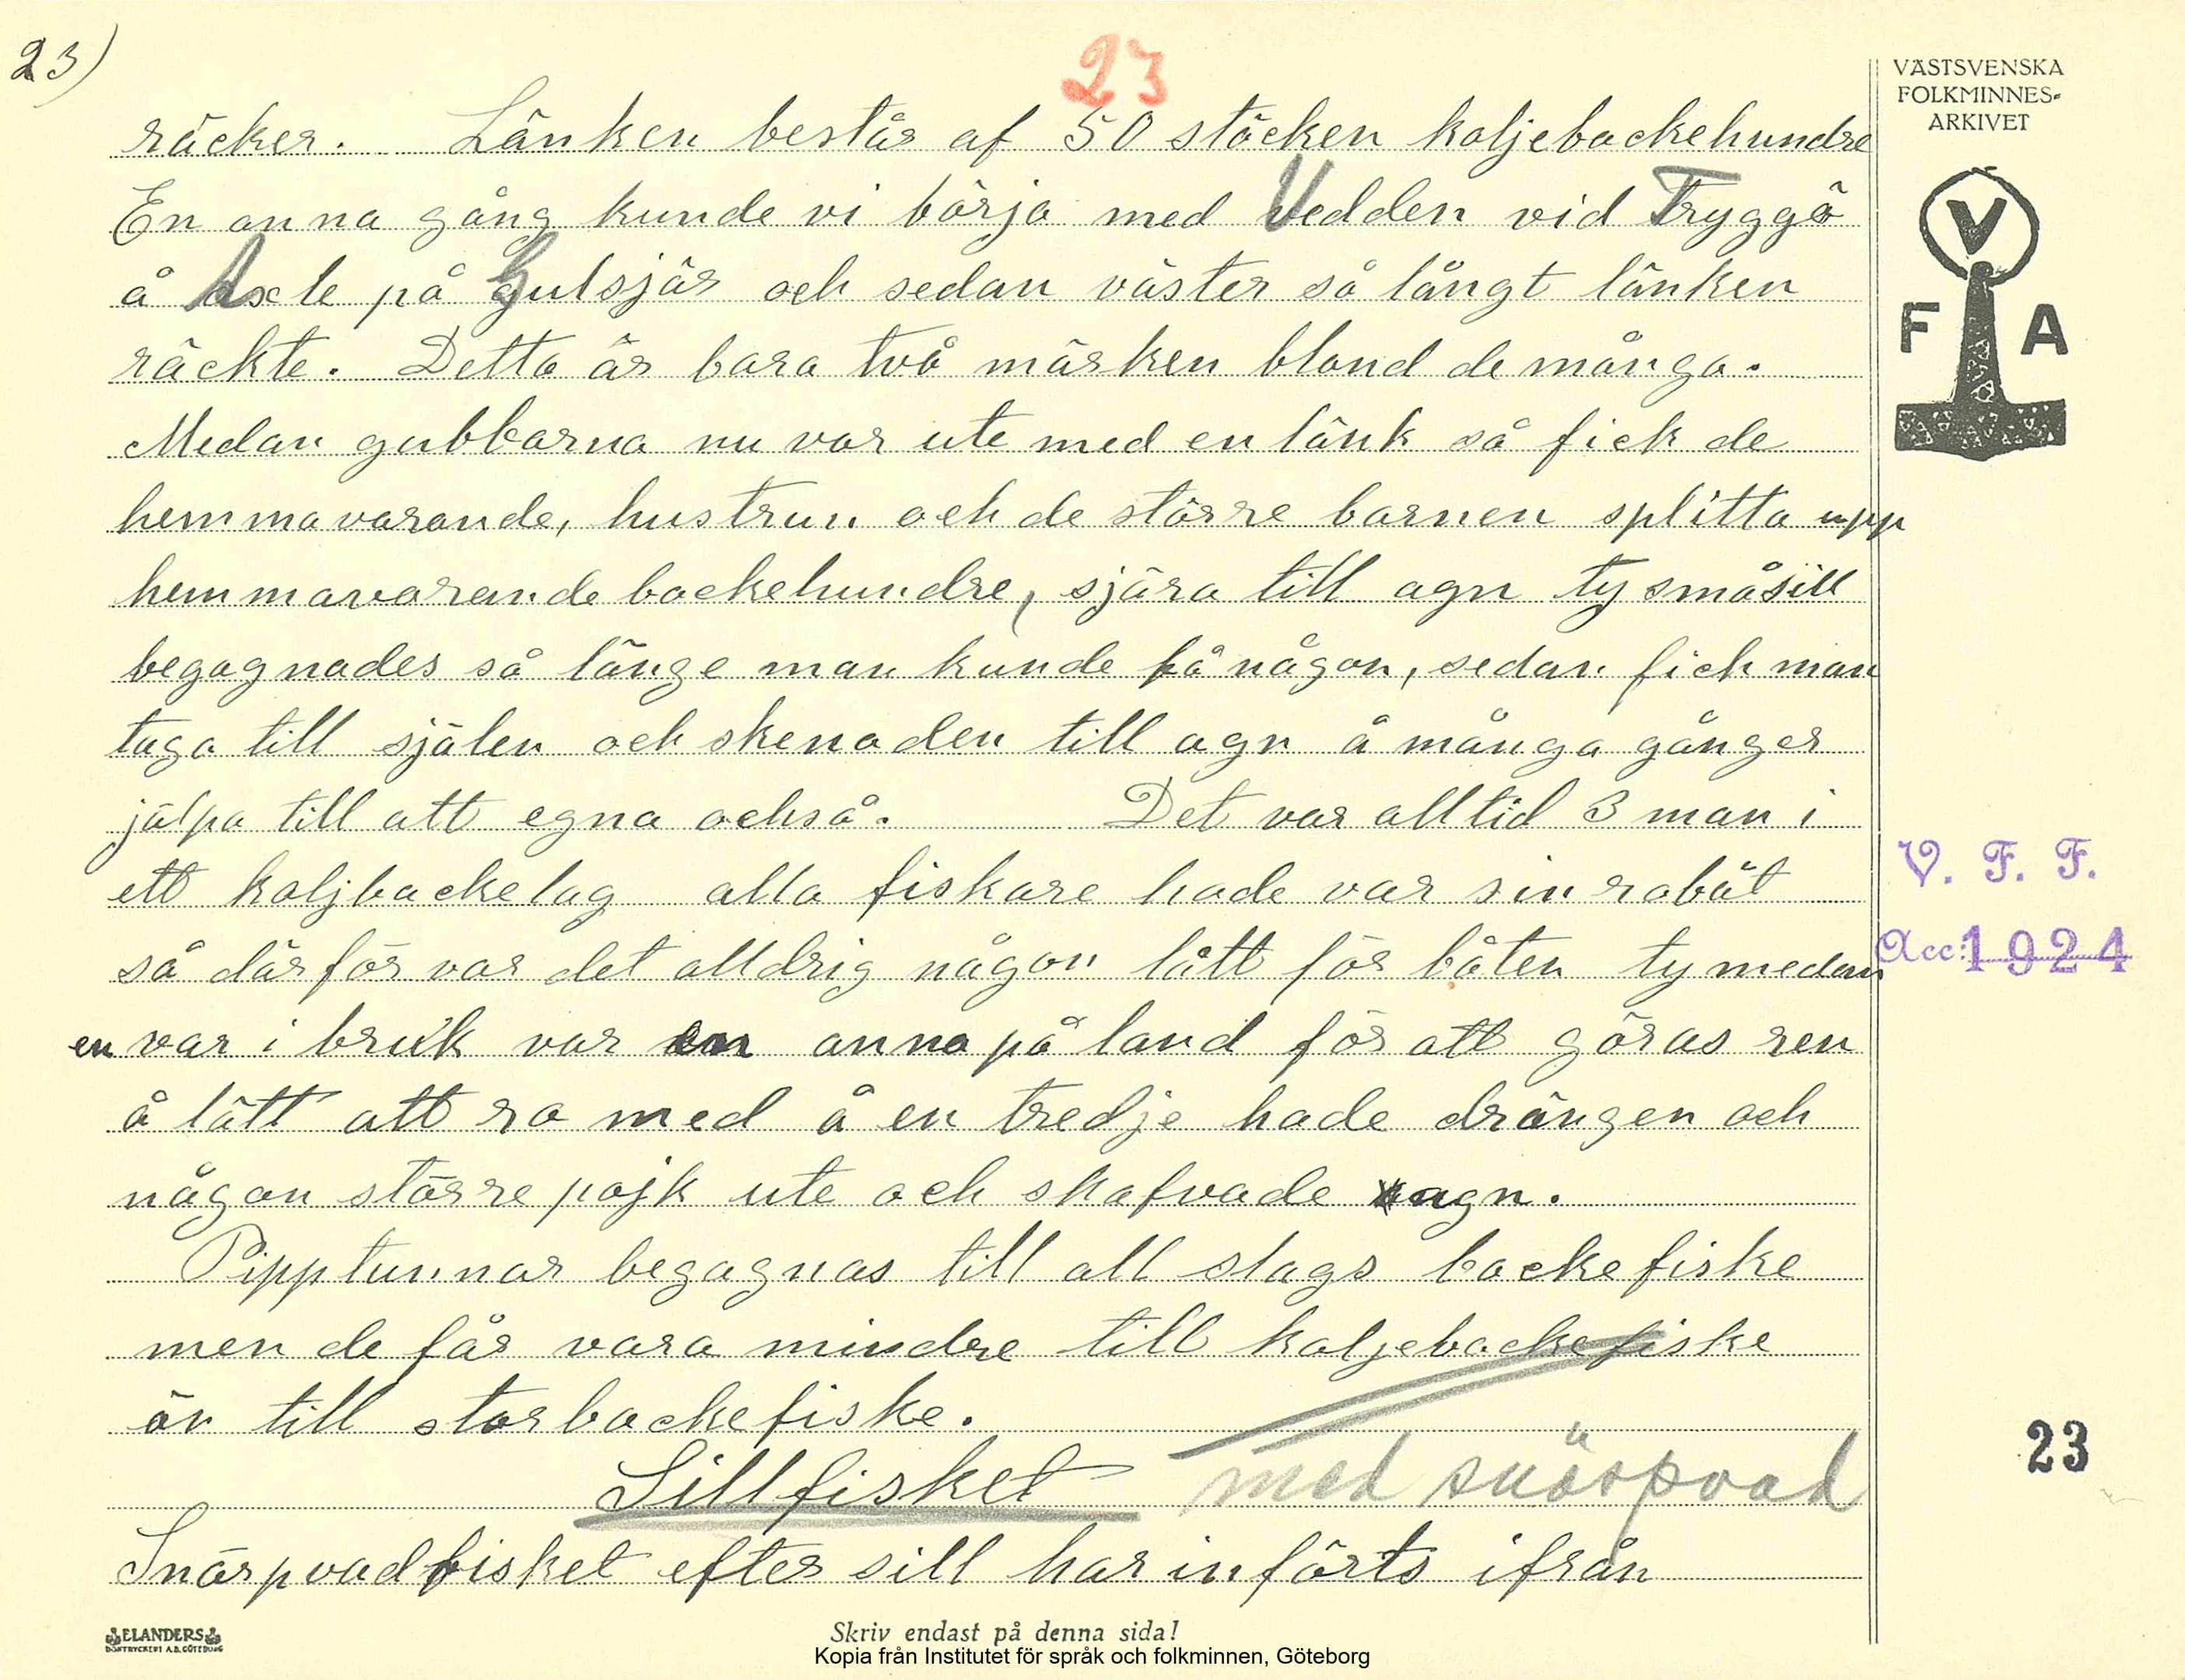 23)
23
räcker. Länken består af 50 stöcken koljebackehundre
En anna gång kunde vi börja med Vedden vid Tryggö
å Axle på Gulsjär och sedan väster så långt länken
räckte. Detta är bara två märken bland de många.
Medan gubbarna nu var ute med en länk så fick de
hemmavarande, hustrun och de större barnen splitta upp
hemmavarande backehundre, sjära till agn ty småsill
begagnades så länge man kunde få någon, sedan fich man
taga till sjålen och skenaden till agn å många gånger
jälpa till att egna också. Det var alltid 3 man i
ett koljbackelag alla fiskare hade var sin robåt
så därför var det alldrig någon lått för båten ty medan
en var i bruk var en anna på land för att göras ren
å lätt att ro med å en tredje hade drängen och
någon större pojk ute och skafvade agn.
Pipptunnar begagnas till all slags backefiske
men de får vara mindre till koljebackefiske
än till storbackefiske.
Sillfisket med snörpvad
Snörpvadfisket efter sill har införts ifrån
VÄSTSVENSKA
FOLKMINNES-
ARKIVET
V
F A
V. F. F.
Acc: 1924
23
ELANDERS
BOKTRYCKERI A.B. GÖTEBORG
Skriv endast på denna sida!
Kopia från Institutet för språk och folkminnen, Göteborg